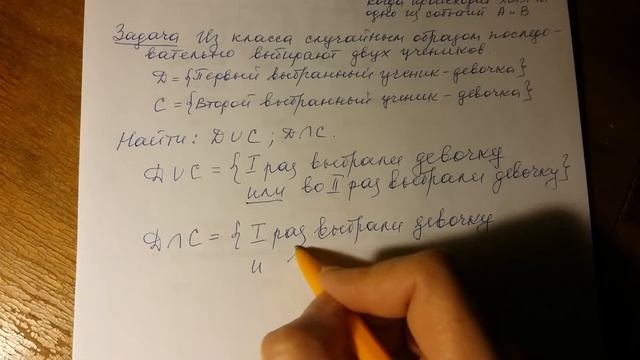 когда происходит хотя бы
одно из событий А и В
Задача Из класса случайным образом последо-
вательно выбирают двух учеников.
D = {Первый выбранный ученик - девочка}
C = {Второй выбранный ученик - девочка}
Найти: D ∪ C ; D ∩ C.
D ∪ C = {I раз выбрали девочку
или во II раз выбрали девочку}
D ∩ C = { I раз выбрали девочку
и